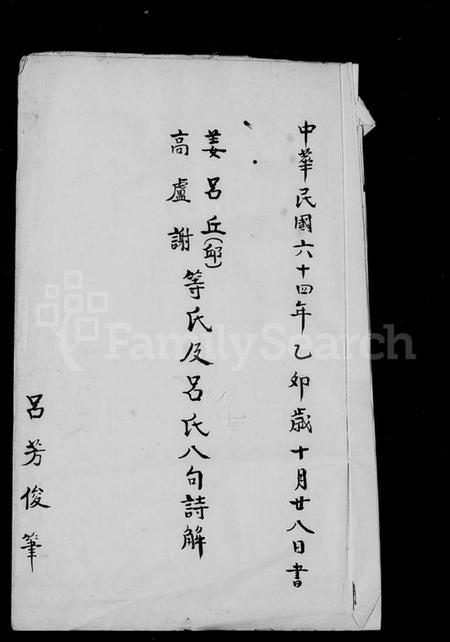 中華民國六十四年乙卯歲十月廿八日書
姜呂丘(邱)
高盧謝
等氏及呂氏八句詩解
呂芳俊筆
FamilySearch